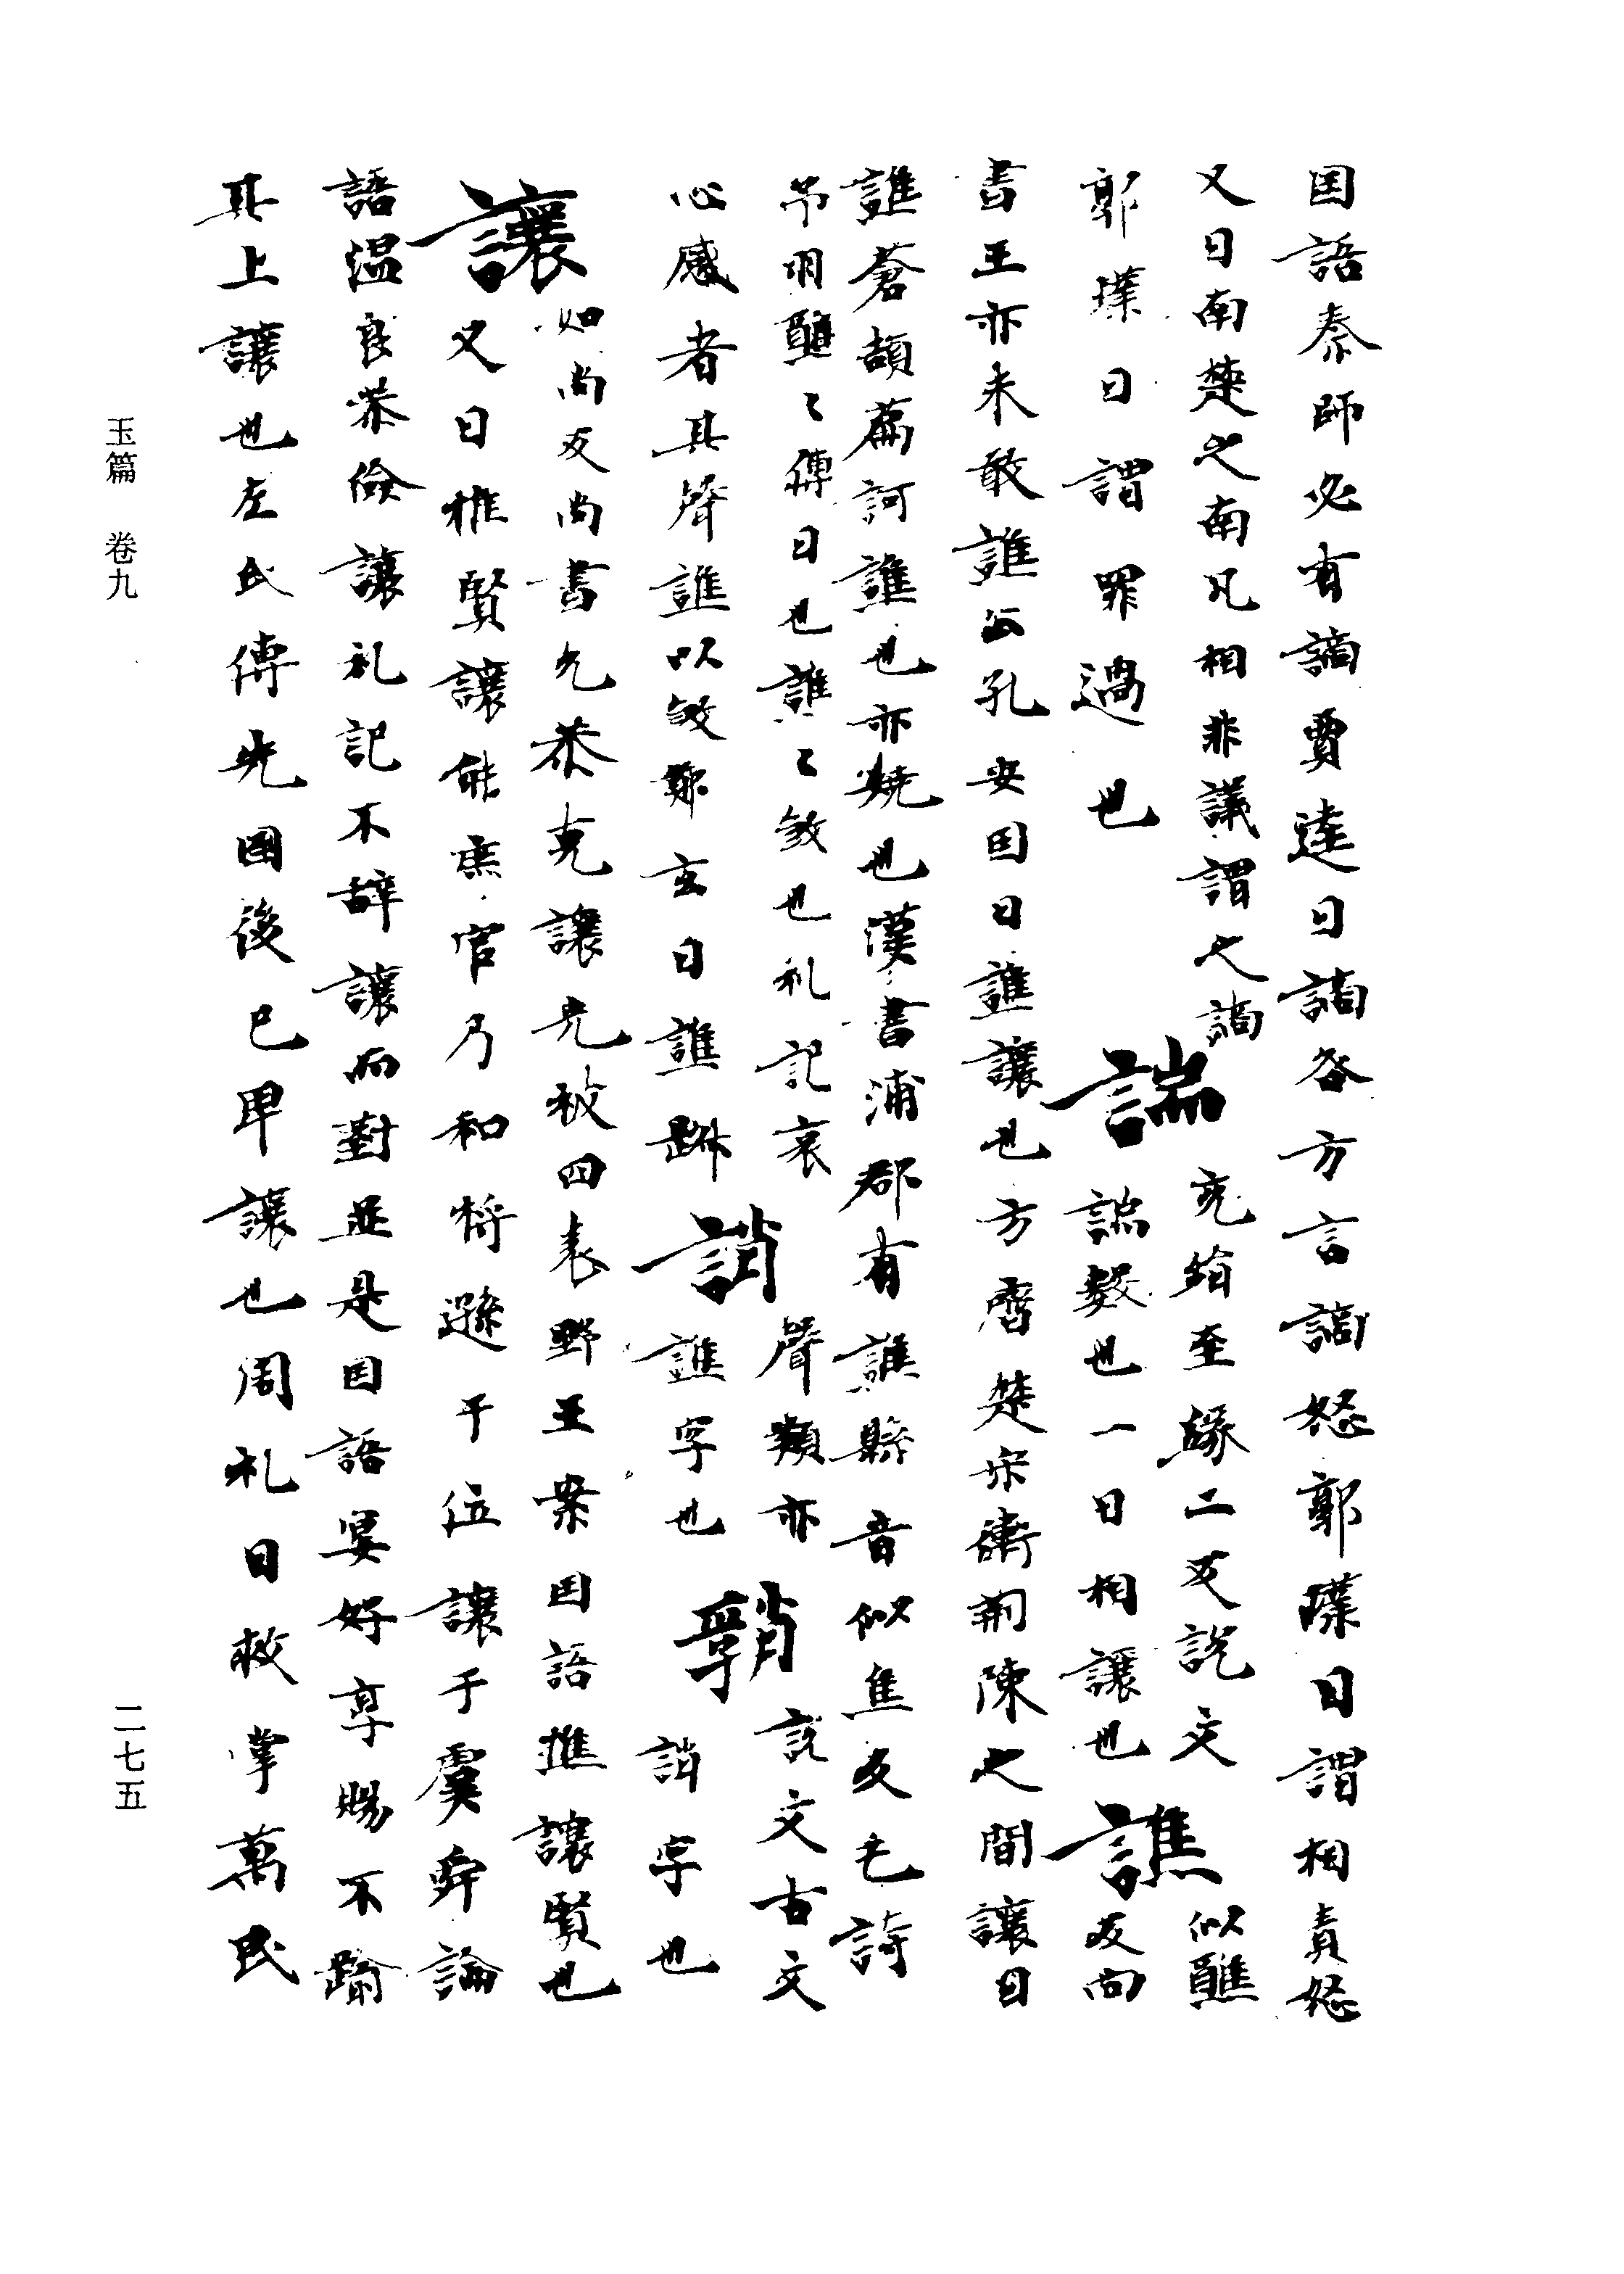 国語秦師必有謫賈逵曰謫咎方言謫怒郭璞曰謂相責怒
又曰南楚之南凡相非議謂之謫
郭璞曰謂罪過也
諯
充絹至緣二反説文
諯數也一曰相讓也
譙
似醮
反尚
書王亦未敢譙公孔安国曰譙讓也方言楚宋衛荊陳之間讓曰
譙蒼頡篇訶譙也亦嬈也漢書浦郡有譙縣音似焦反毛詩
予羽譙〻傳曰也譙〻殺也礼記哀
心感者其聲譙以殺鄭玄曰譙踧
誚
聲類亦
譙字也
𧩮
説文古文
誚字也
讓
如尚反尚書允恭克讓光被四表野王案国語推讓賢也
又曰推賢讓能庶官乃和將遜于位讓于虞舜論
語温良恭儉讓礼記不辞讓而對並是国語宴好享賜不踰
其上讓也左氏傳先國後己卑讓也周礼曰救掌萬民
玉篇 卷九
二七五